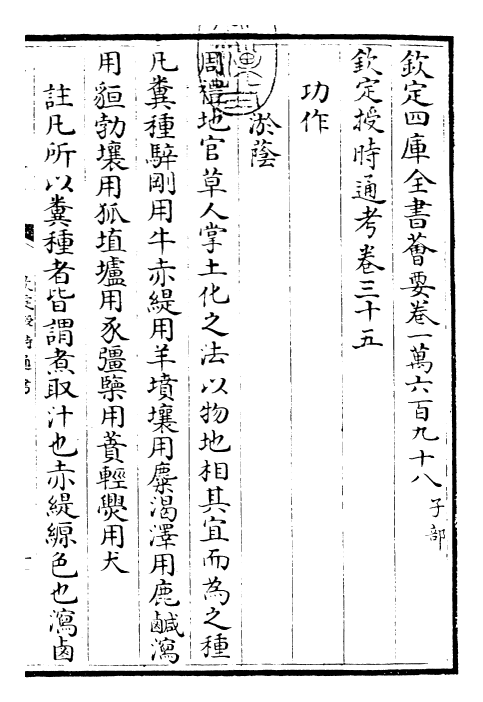 欽定四庫全書薈要卷一萬六百九十八 子部
欽定授時通考卷三十五
功作
淤蔭
周禮地官草人掌土化之法以物地相其宜而為之種
凡糞種騂剛用牛赤緹用羊墳壤用麋渴澤用鹿鹹瀉
用貆勃壤用狐埴壚用豕彊㯺用蕡輕㸐用犬
註凡所以糞種者皆謂煮取汁也赤緹縓色也瀉鹵
欽定授時通考